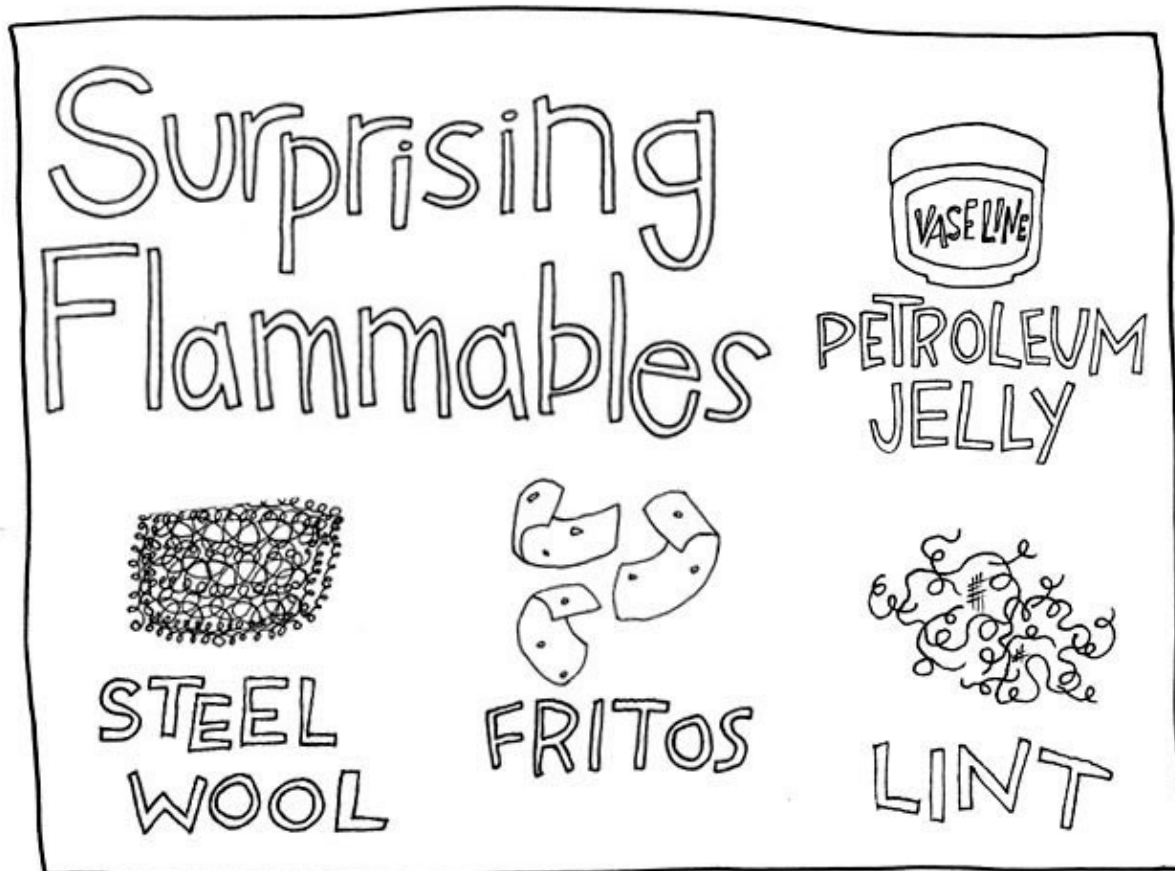 Surprising
Flammables
VASELINE
PETROLEUM
JELLY
STEEL
WOOL
FRITOS
LINT